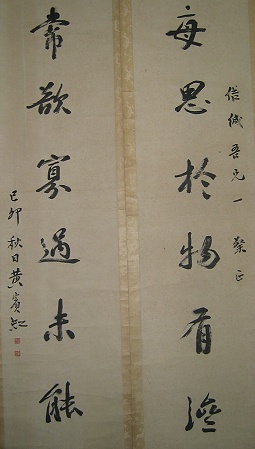 信誠吾兄一粲正
每思於物有濟
常欲寡過未能
己卯秋日黃賓虹